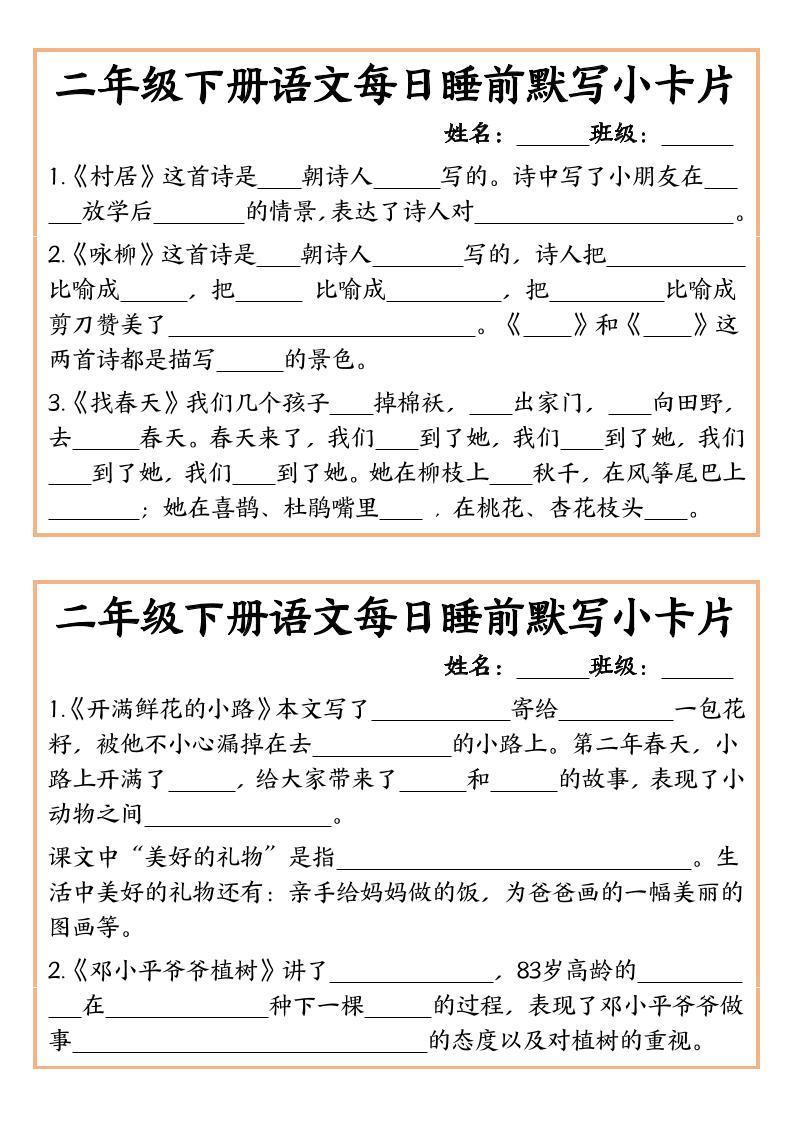 二年级下册语文每日睡前默写小卡片
姓名：______班级：______
1.《村居》这首诗是____朝诗人______写的。诗中写了小朋友在___
___放学后________的情景，表达了诗人对_______________________。
2.《咏柳》这首诗是____朝诗人________写的，诗人把____________
比喻成______，把______ 比喻成__________，把__________比喻成
剪刀赞美了___________________________。《____》和《____》这
两首诗都是描写______的景色。
3.《找春天》我们几个孩子____掉棉袄，____出家门，____向田野，
去______春天。春天来了，我们____到了她，我们____到了她，我们
____到了她，我们____到了她。她在柳枝上____秋千，在风筝尾巴上
________；她在喜鹊、杜鹃嘴里____ ，在桃花、杏花枝头____。
二年级下册语文每日睡前默写小卡片
姓名：______班级：______
1.《开满鲜花的小路》本文写了____________寄给__________一包花
籽，被他不小心漏掉在去____________的小路上。第二年春天，小
路上开满了______，给大家带来了______和______的故事，表现了小
动物之间________________。
课文中“美好的礼物”是指_______________________________。生
活中美好的礼物还有：亲手给妈妈做的饭，为爸爸画的一幅美丽的
图画等。
2.《邓小平爷爷植树》讲了______________，83岁高龄的_________
___在______________种下一棵______的过程，表现了邓小平爷爷做
事_______________________________的态度以及对植树的重视。